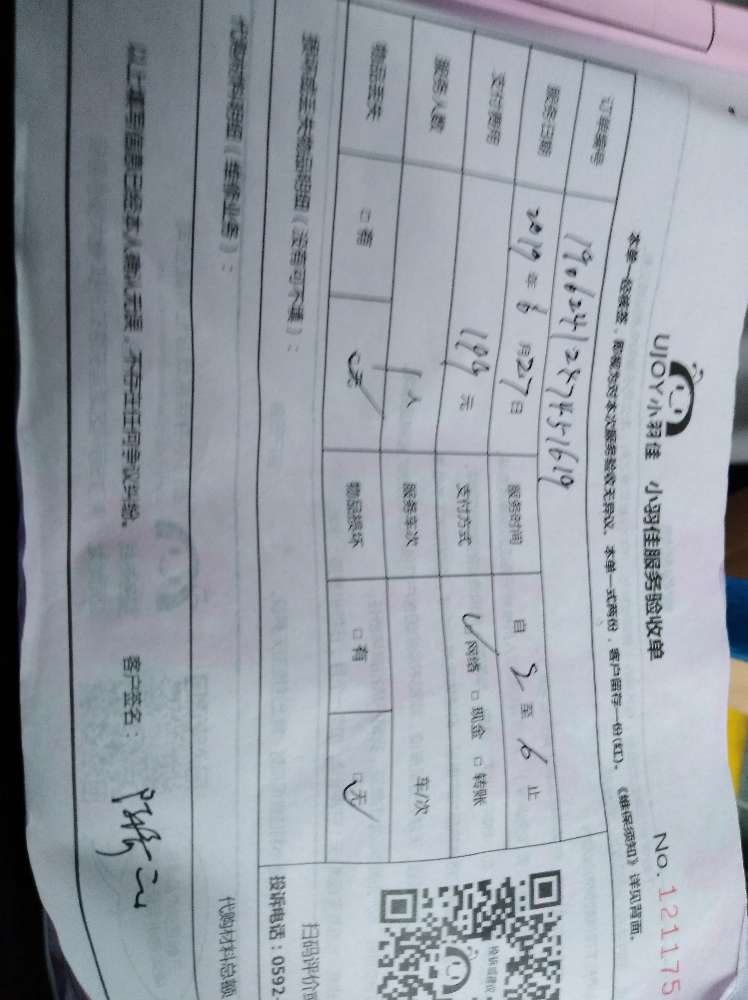 UJOY小羽佳 小羽佳服务验收单
No. 121175
本单一经核签,即视为对本次服务验收无异议。本单一式两份,客户留存一份(红)。《维保须知》详见背面。
订单编号
服务日期 2019年6月27日 服务时间 自 2 至 6 止
支付费用 199元 支付方式 网络 □现金 □转账
服务人数 1人 服务车次 车/次
物品丢失 □有 □无 物品损坏 □有 □无
损坏或丢失物品明细(没有可不填):
代购材料明细(维修业务):
代购材料总额
以上填写信息已经本人确认无误,不存在任何争议纠纷。 客户签名:
投诉或建议
扫码评价
投诉电话:0592